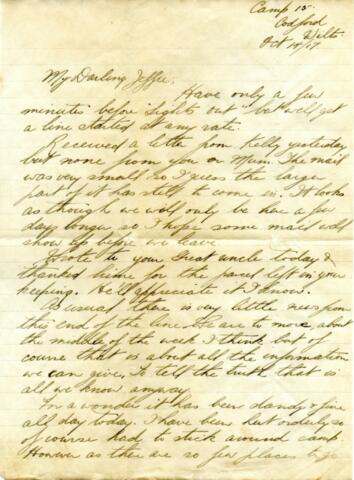 Camp 15
Codford
Wilts.
Oct 14/17.
My Darling
Have only a few
minutes before "Lights out" but will get
a line started at any rate.
Received a letter from Kelly yesterday
but none from you or Mum. The mail
was very small so I guess the larger
part of it has still to come in. It looks
as though we will only be here a few
days longer so I hope some mail will
show up before we leave.
Wrote to your Great uncle today &
thanked him for the parcel left in your
keeping. He'll appreciate it I know.
As usual there is very little news from
this end of the line. We are to move about
the middle of the week I think but of
course that is about all the information
we can give. To tell the truth that is
all we know anyway.
For a wonder it has been dandy & fine
all day today. I have been hut orderly so
of course had to stick around camp.
However as there are so few places to go